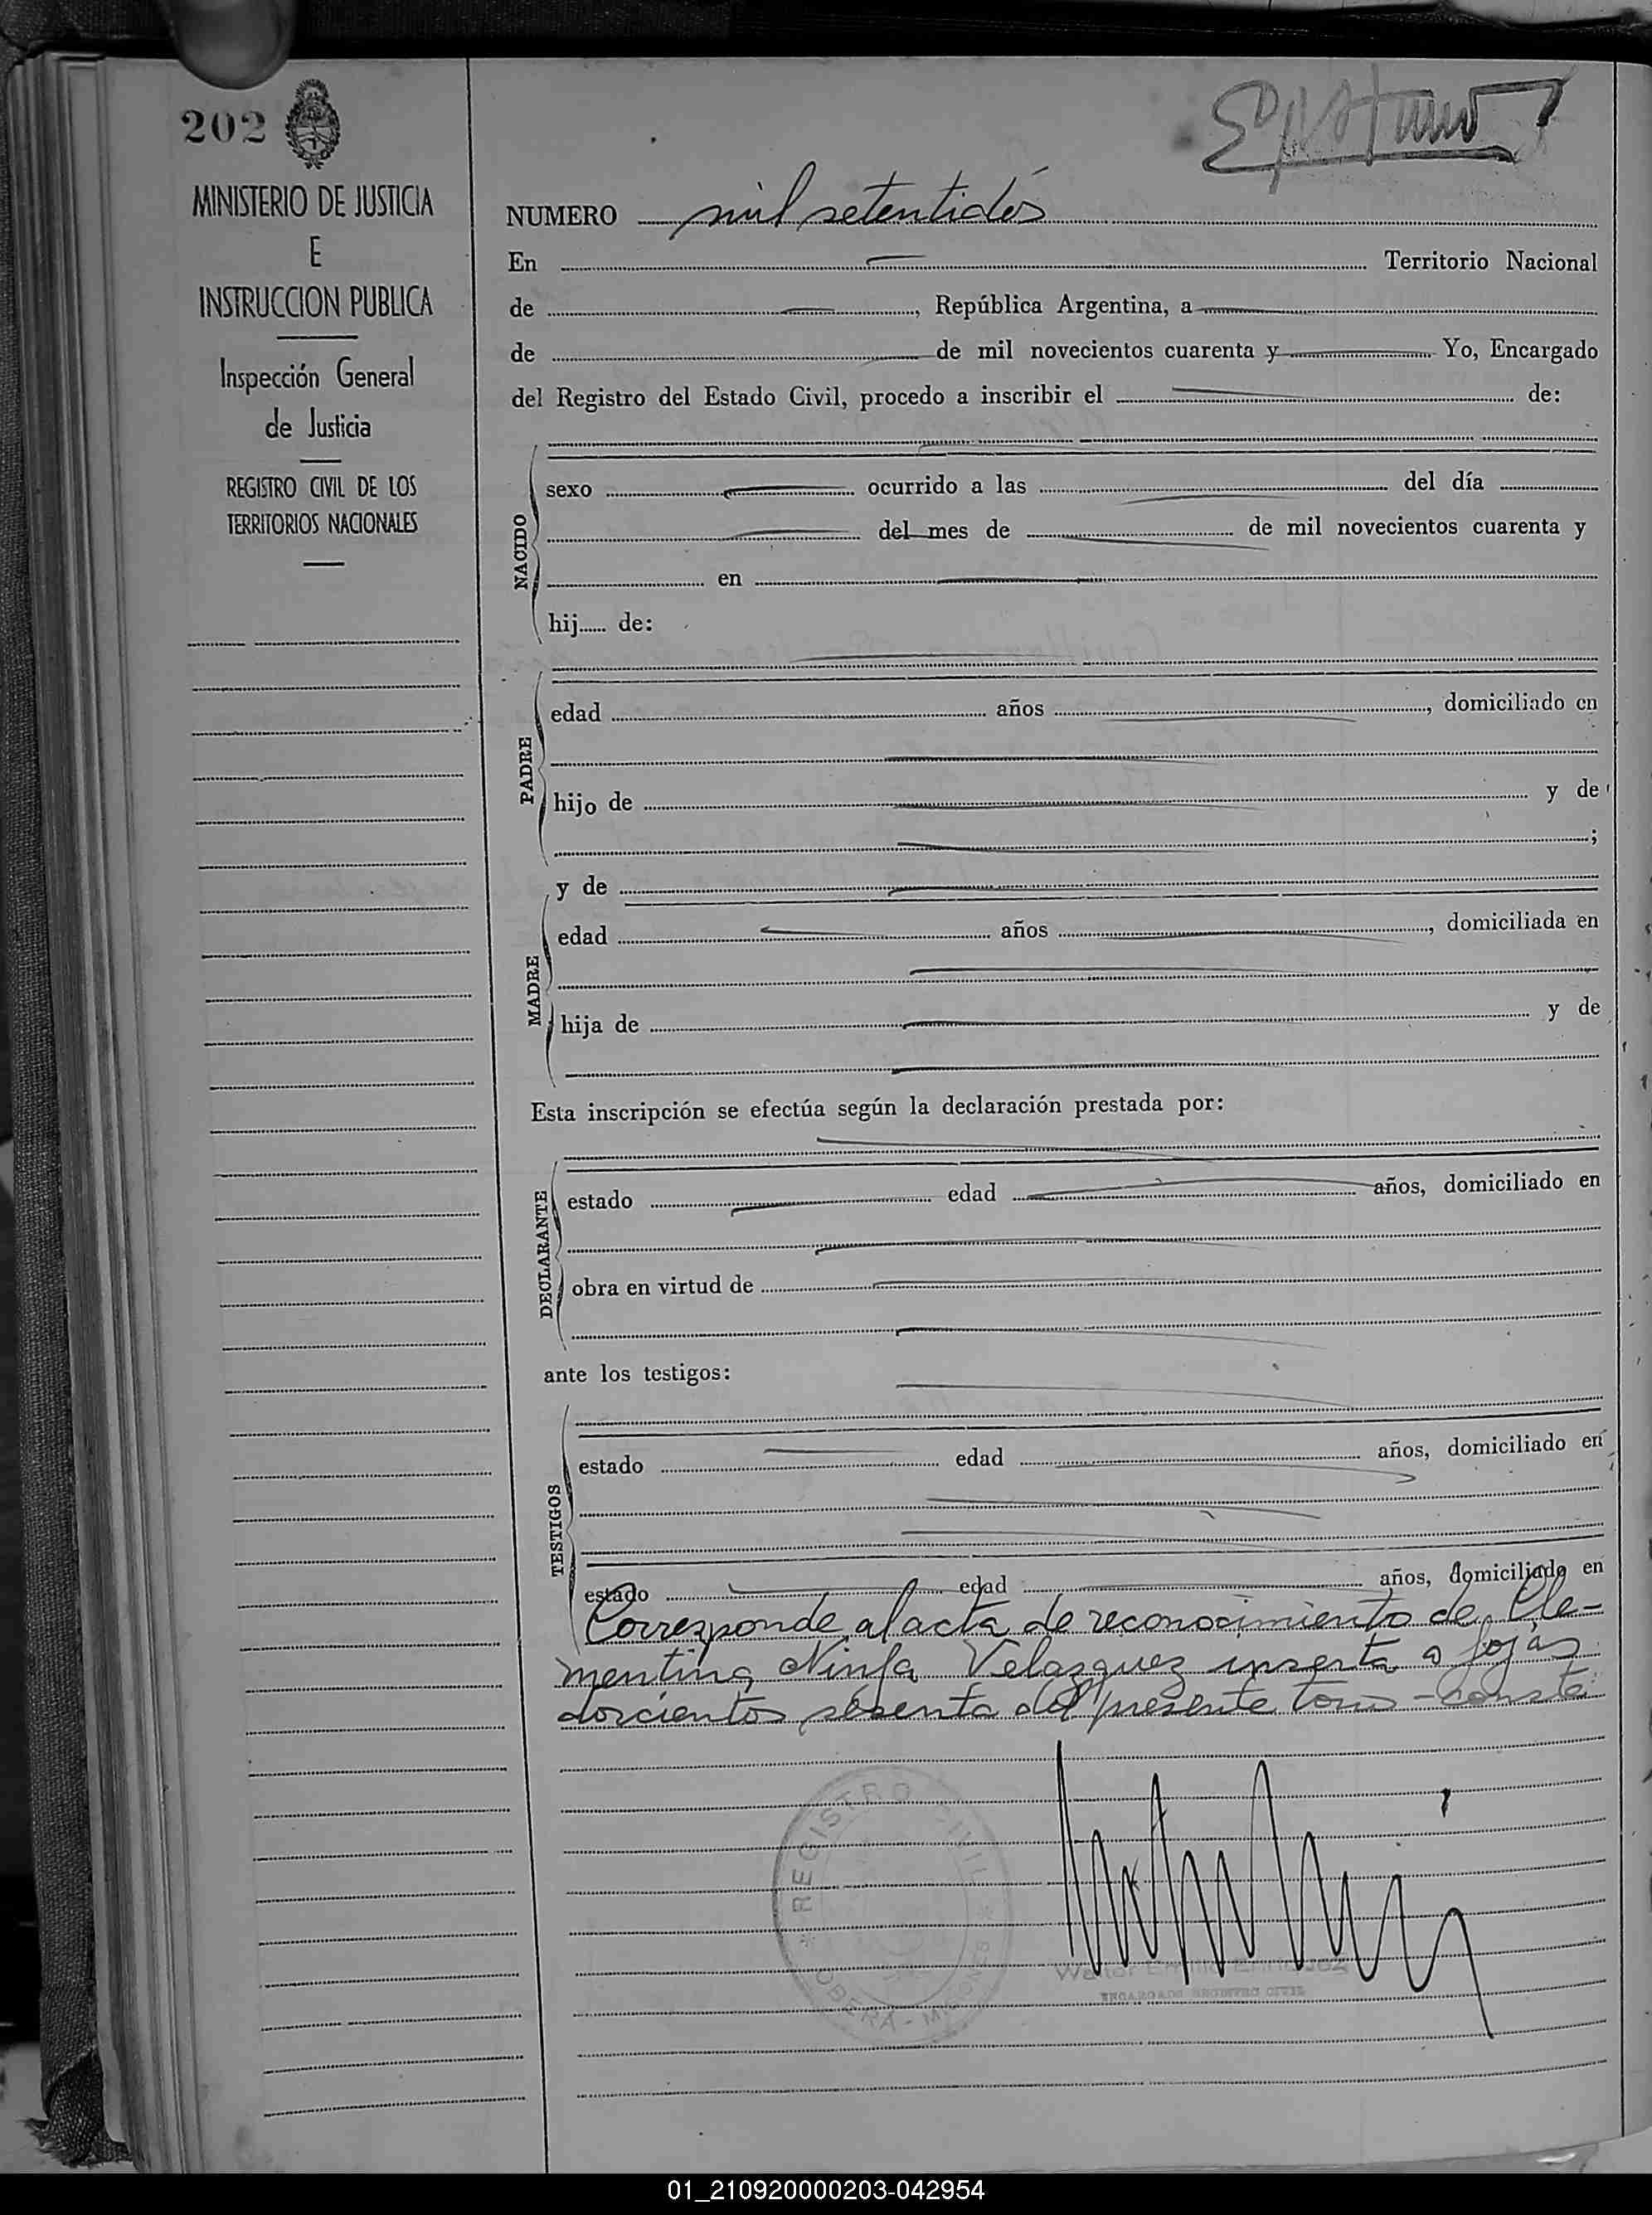 202
MINISTERIO DE JUSTICIA
E
INSTRUCCION PUBLICA
Inspección General
de Justicia
REGISTRO CIVIL DE LOS
TERRITORIOS NACIONALES
NUMERO mil setentidós
En Territorio Nacional
de , República Argentina, a
de de mil novecientos cuarenta y Yo, Encargado
del Registro del Estado Civil, procedo a inscribir el de:
NACIDO
sexo ocurrido a las del día
del mes de de mil novecientos cuarenta y
en
hij...... de:
PADRE
edad años , domiciliado en
hijo de y de
;
y de
MADRE
edad años , domiciliada en
hija de y de
Esta inscripción se efectúa según la declaración prestada por:
DECLARANTE
estado edad años, domiciliado en
obra en virtud de
ante los testigos:
TESTIGOS
estado edad años, domiciliado en
estado edad años, domiciliado en
Corresponde al acta de reconocimiento de Cle-
mentina Ninfa Velazquez inserta a fojas
doscientos sesenta del presente tomo - conste
REGISTRO CIVIL
OBERA - MISIONES
Walter Emilio Enriquez
ENCARGADO REGISTRO CIVIL
01_210920000203-042954